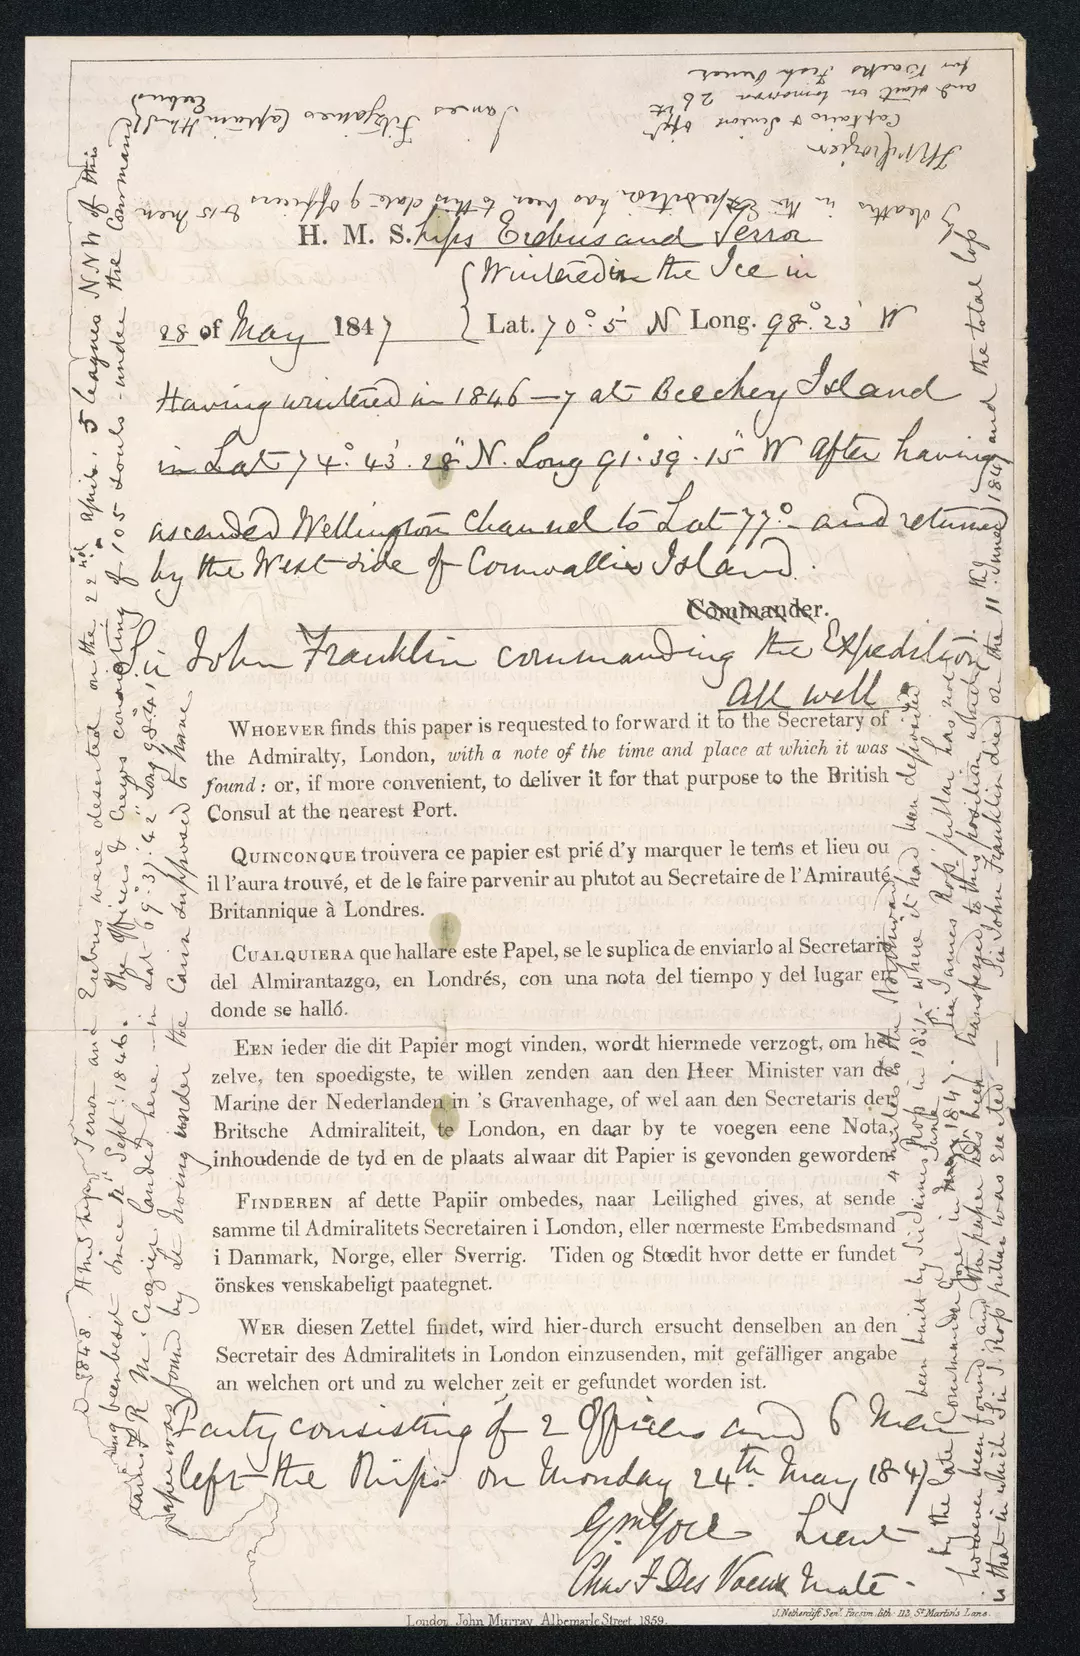 H. M. S. hips Erebus and Terror
Wintered in the Ice in
28 of May 1847 Lat. 70° 5' N Long. 98° 23' W
Having wintered in 1846–7 at Beechey Island
in Lat 74° 43' 28" N. Long 91° 39' 15" W after having
ascended Wellington Channel to Lat 77° – and returned
by the West side of Cornwallis Island.
Commander.
Sir John Franklin commanding the Expedition
All well
WHOEVER finds this paper is requested to forward it to the Secretary of
the Admiralty, London, with a note of the time and place at which it was
found: or, if more convenient, to deliver it for that purpose to the British
Consul at the nearest Port.
QUINCONQUE trouvera ce papier est prié d'y marquer le tems et lieu ou
il l'aura trouvé, et de le faire parvenir au plutot au Secretaire de l'Amirauté
Britannique à Londres.
CUALQUIERA que hallare este Papel, se le suplica de enviarlo al Secretario
del Almirantazgo, en Londrés, con una nota del tiempo y del lugar en
donde se halló.
EEN ieder die dit Papier mogt vinden, wordt hiermede verzogt, om het
zelve, ten spoedigste, te willen zenden aan den Heer Minister van de
Marine der Nederlanden in 's Gravenhage, of wel aan den Secretaris der
Britsche Admiraliteit, te London, en daar by te voegen eene Nota,
inhoudende de tyd en de plaats alwaar dit Papier is gevonden geworden
FINDEREN af dette Papiir ombedes, naar Leilighed gives, at sende
samme til Admiralitets Secretairen i London, eller nœrmeste Embedsmand
i Danmark, Norge, eller Sverrig. Tiden og Stœdit hvor dette er fundet
önskes venskabeligt paategnet.
WER diesen Zettel findet, wird hier-durch ersucht denselben an den
Secretair des Admiralitets in London einzusenden, mit gefälliger angabe
an welchen ort und zu welcher zeit er gefundet worden ist.
Party consisting of 2 Officers and 6 Men
left the Ships on Monday 24th May 1847
Gm Gore Lieut
Chas F Des Voeux Mate
1848. H M ships Terror and Erebus were deserted on the 22nd April, 5 leagues NNW of this
having been beset since 12th Sept 1846. The Officers & Crews consisting of 105 souls under the Command
of Captain F R M Crozier landed here – in Lat 69° 37' 42" Long 98° 41'
paper was found by Lt Irving under the Cairn supposed to have
been built by Sir James Ross in 1831 – where it had been deposited 4 miles to the Northward
by the late Commander Gore in May June 1847. Sir James Ross' pillar has not
however been found, and the paper has been transferred to this position which
is that in which Sir J. Ross pillar was erected – Sir John Franklin died on the 11th June 1847 and the total loss
by deaths in the Expedition has been to this date 9 Officers & 15 Men
James Fitzjames Captain HMS
Erebus
FRM Crozier
Captain & Senior Offr
and start on tomorrow 26th
for Backs Fish River
London, John Murray, Albemarle Street, 1859.
J. Netherclift Senr. Facsim. lith. 113, St Martin's Lane.